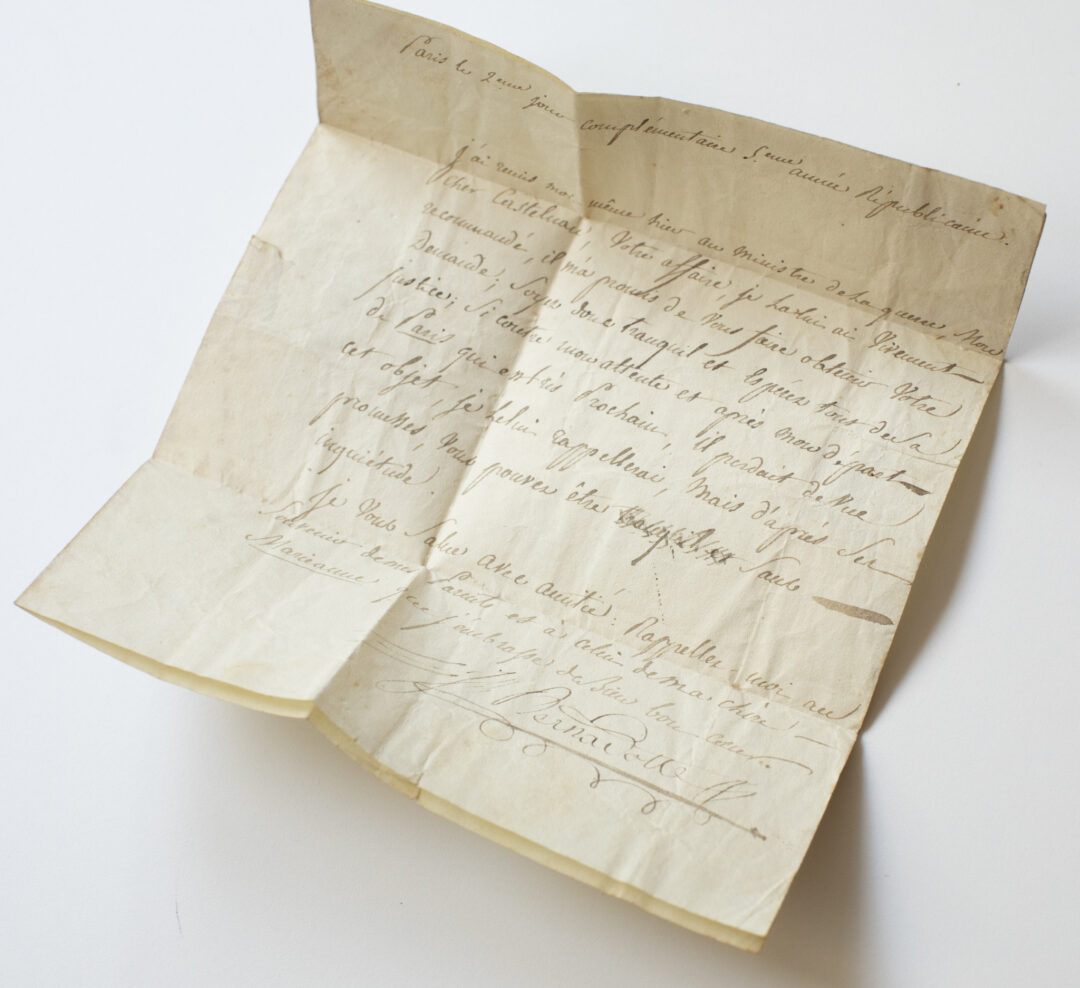 Paris le 2.eme jour complémentaire 5.eme année Républicaine.
j'ai remis moi même hier au ministre de La guerre, Mon
cher Castelnau, Votre affaire, je La lui ai Vivement
recommandé, il m'a promis de Vous faire obtenir Votre
Demande; Soyez donc tranquil et Espérez tous de Sa
justice; Si contre mon attente et après mon départ
de Paris qui est très Prochain, il perdait de Vue
cet objet, je Le lui rappellerai, Mais d'après Ses
promesses, Vous pouvez être Sans
inquiétude.
Je Vous Salue avec amitié: Rappellez-moi au
Souvenir de mes Parents et à celui de ma chère
Marianne que j'embrasse de bien bon cœur.
Bernadotte